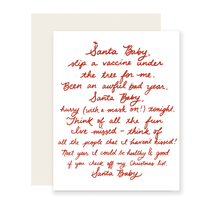 Santa Baby,
slip a vaccine under
the tree for me.
Been an awful bad year,
Santa Baby,
hurry (with a mask on!) tonight.
Think of all the fun
I've missed - think of
all the people that I haven't kissed!
Next year I could be healthy & good
if you check off my Christmas list.
Santa Baby